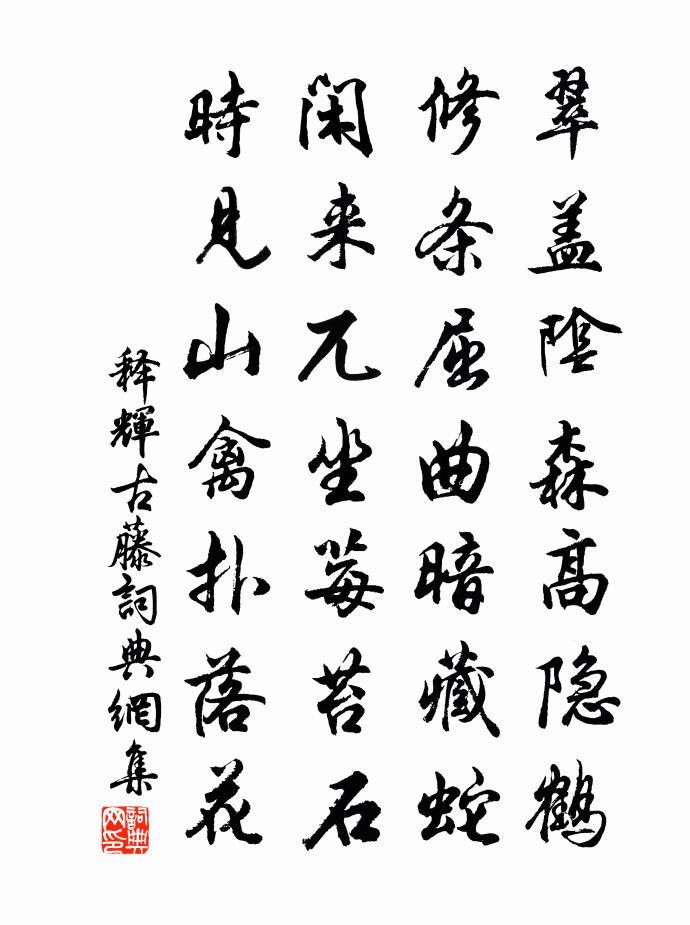 翠盖陰森高隐鶴
修条屈曲暗藏蛇
閑来兀坐莓苔石
時見山禽扑落花
释輝古藤詞典網集
詞典网印